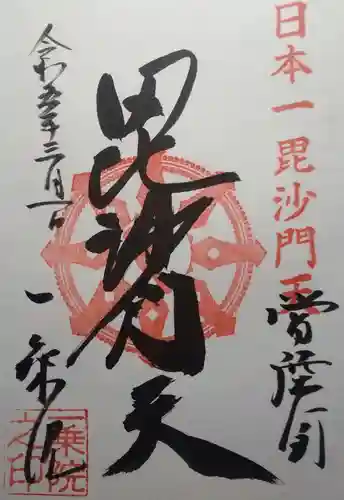 日本一毘沙門王
毘沙門天
令和五年三月一日
一乗院
一乗院之印